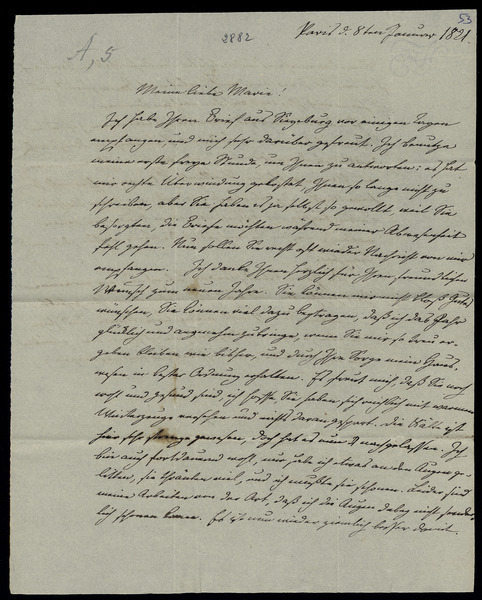 53
A, 5
2882
Paris d. 8ten Januar 1821.
Meine liebe Marie!
Ich habe Ihren Brief aus Siegburg vor einigen Tagen
empfangen und mich sehr darüber gefreut. Ich benutze
meine erste freye Stunde um Ihnen zu antworten: es hat
mir rechte Überwindung gekostet, Ihnen so lange nicht zu
schreiben, aber Sie haben es ja selbst so gewollt, weil Sie
besorgten, die Briefe möchten während meiner Abwesenheit
fehl gehen. Nun sollen Sie recht oft wieder Nachricht von mir
empfangen. Ich danke Ihnen herzlich für Ihren freundlichen
Wunsch zum neuen Jahre. Sie können mir nicht bloß Gutes
wünschen, Sie können viel dazu beytragen, daß ich das Jahr
glücklich und angenehm zubringe, wenn Sie mir so treu er-
geben bleiben wie bisher, und durch Ihre Sorge mein Haus-
wesen in bester Ordnung erhalten. Es freut mich, daß Sie noch
wohl und gesund sind, ich hoffe Sie haben sich reichlich mit warmem
Winterzeuge versehen und nichts daran gespart. Die Kälte ist
hier sehr strenge gewesen, doch hat es nun nachgelassen. Ich
bin auch fortdauernd wohl, nur habe ich etwas an den Augen ge-
litten, sie thränten viel, und ich mußte sie schonen. Leider sind
meine Arbeiten von der Art, daß ich die Augen dabey nicht sonder-
lich schonen kann. Es ist nun wieder ziemlich besser damit.